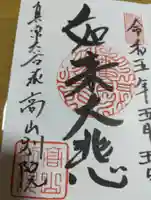 令和五年五月五日
如来大悲
真宗大谷派高山別院